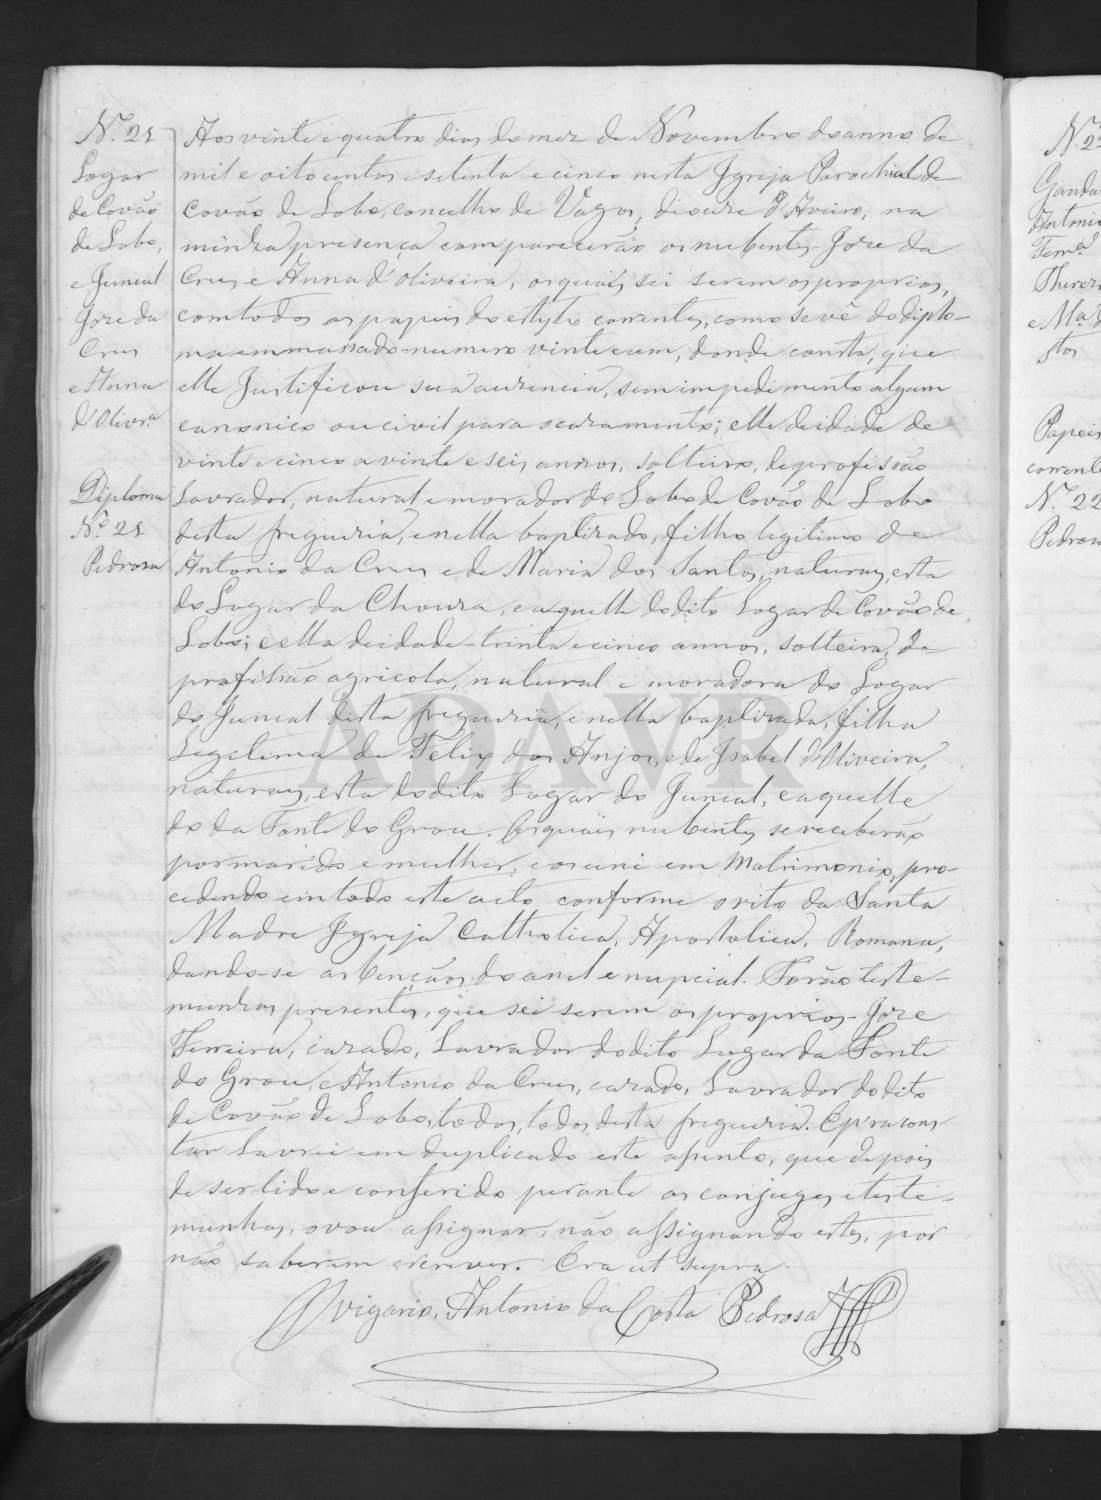 N.º 21
Logar
de Covão
de Lobo,
e Juncal
Joze da
Cruz
e Anna
d'Olivr.ª
Diploma
N.º 21
Pedroza
Aos vinte e quatro dias do mez de Novembro do anno de
mil e oito centos e setenta e cinco nesta Igreja Parochial de
Covão de Lobo, concelho de Vagos, diocese d'Aveiro, na
minha presença comparecerão os nubentes - Joze da
Cruz e Anna d'Oliveira, os quáis sei serem os proprios,
com todos os papeis do estylo correntes, como se vê do diplo-
ma emmassado numero vinte e um, donde consta, que
elle Justificou sua auzencia, sem impedimento algum
canonico ou civil para o caramento; elle de idade de
vinte e cinco a vinte e seis annos, solteiro, de profissão
Lavrador, natural e morador do Lobo de Covão de Lobo
desta freguezia, e nella baptizado, filho legitimo de
Antonio da Cruz e de Maria dos Santos, naturaes, esta
do Lugar da Chouza, e aquelle do dito Logar de Covão de
Lobo; e ella de idade - trinta e cinco annos, solteira, de
profissão agricola, natural e moradora do Logar
do Juncal desta freguezia, e nella baptizada, filha
Legitima de Felix dos Anjos, e de Izabel d'Oliveira,
naturaes, esta do dito Logar do Juncal, e aquelle
do da Fonte do Grou. Os quáis nubentes se receberão
por marido e mulher, e os uni em Matrimonio, pro-
cedendo em todo este acto conforme o rito da Santa
Madre Igreja Catholica, Apostolica, Romana,
dando-se as bençãos do anel e nupcial. Forão teste-
munhas presentes, que sei serem os proprios - Joze
Ferreira, cazado, Lavrador do dito Lugar da Fonte
do Grou, e Antonio da Cruz, cazado, Lavrador, do dito
de Covão de Lobo, todos, todos, desta freguezia. E p'ra cons
tar Lavrei em duplicado este assento, que depois
de ser lido e conferido perante os conjuges e teste-
munhas, o vou assignar, não assignando estes, por
não saberem escrever. Era ut supra
O vigario, Antonio da Costa Pedrosa
N.º 2
Ganda
Antonio
Ferr.ª
Therez
e M.ª d
stos
Papeis
corrent
N.º 22
Pedros
ADAVR